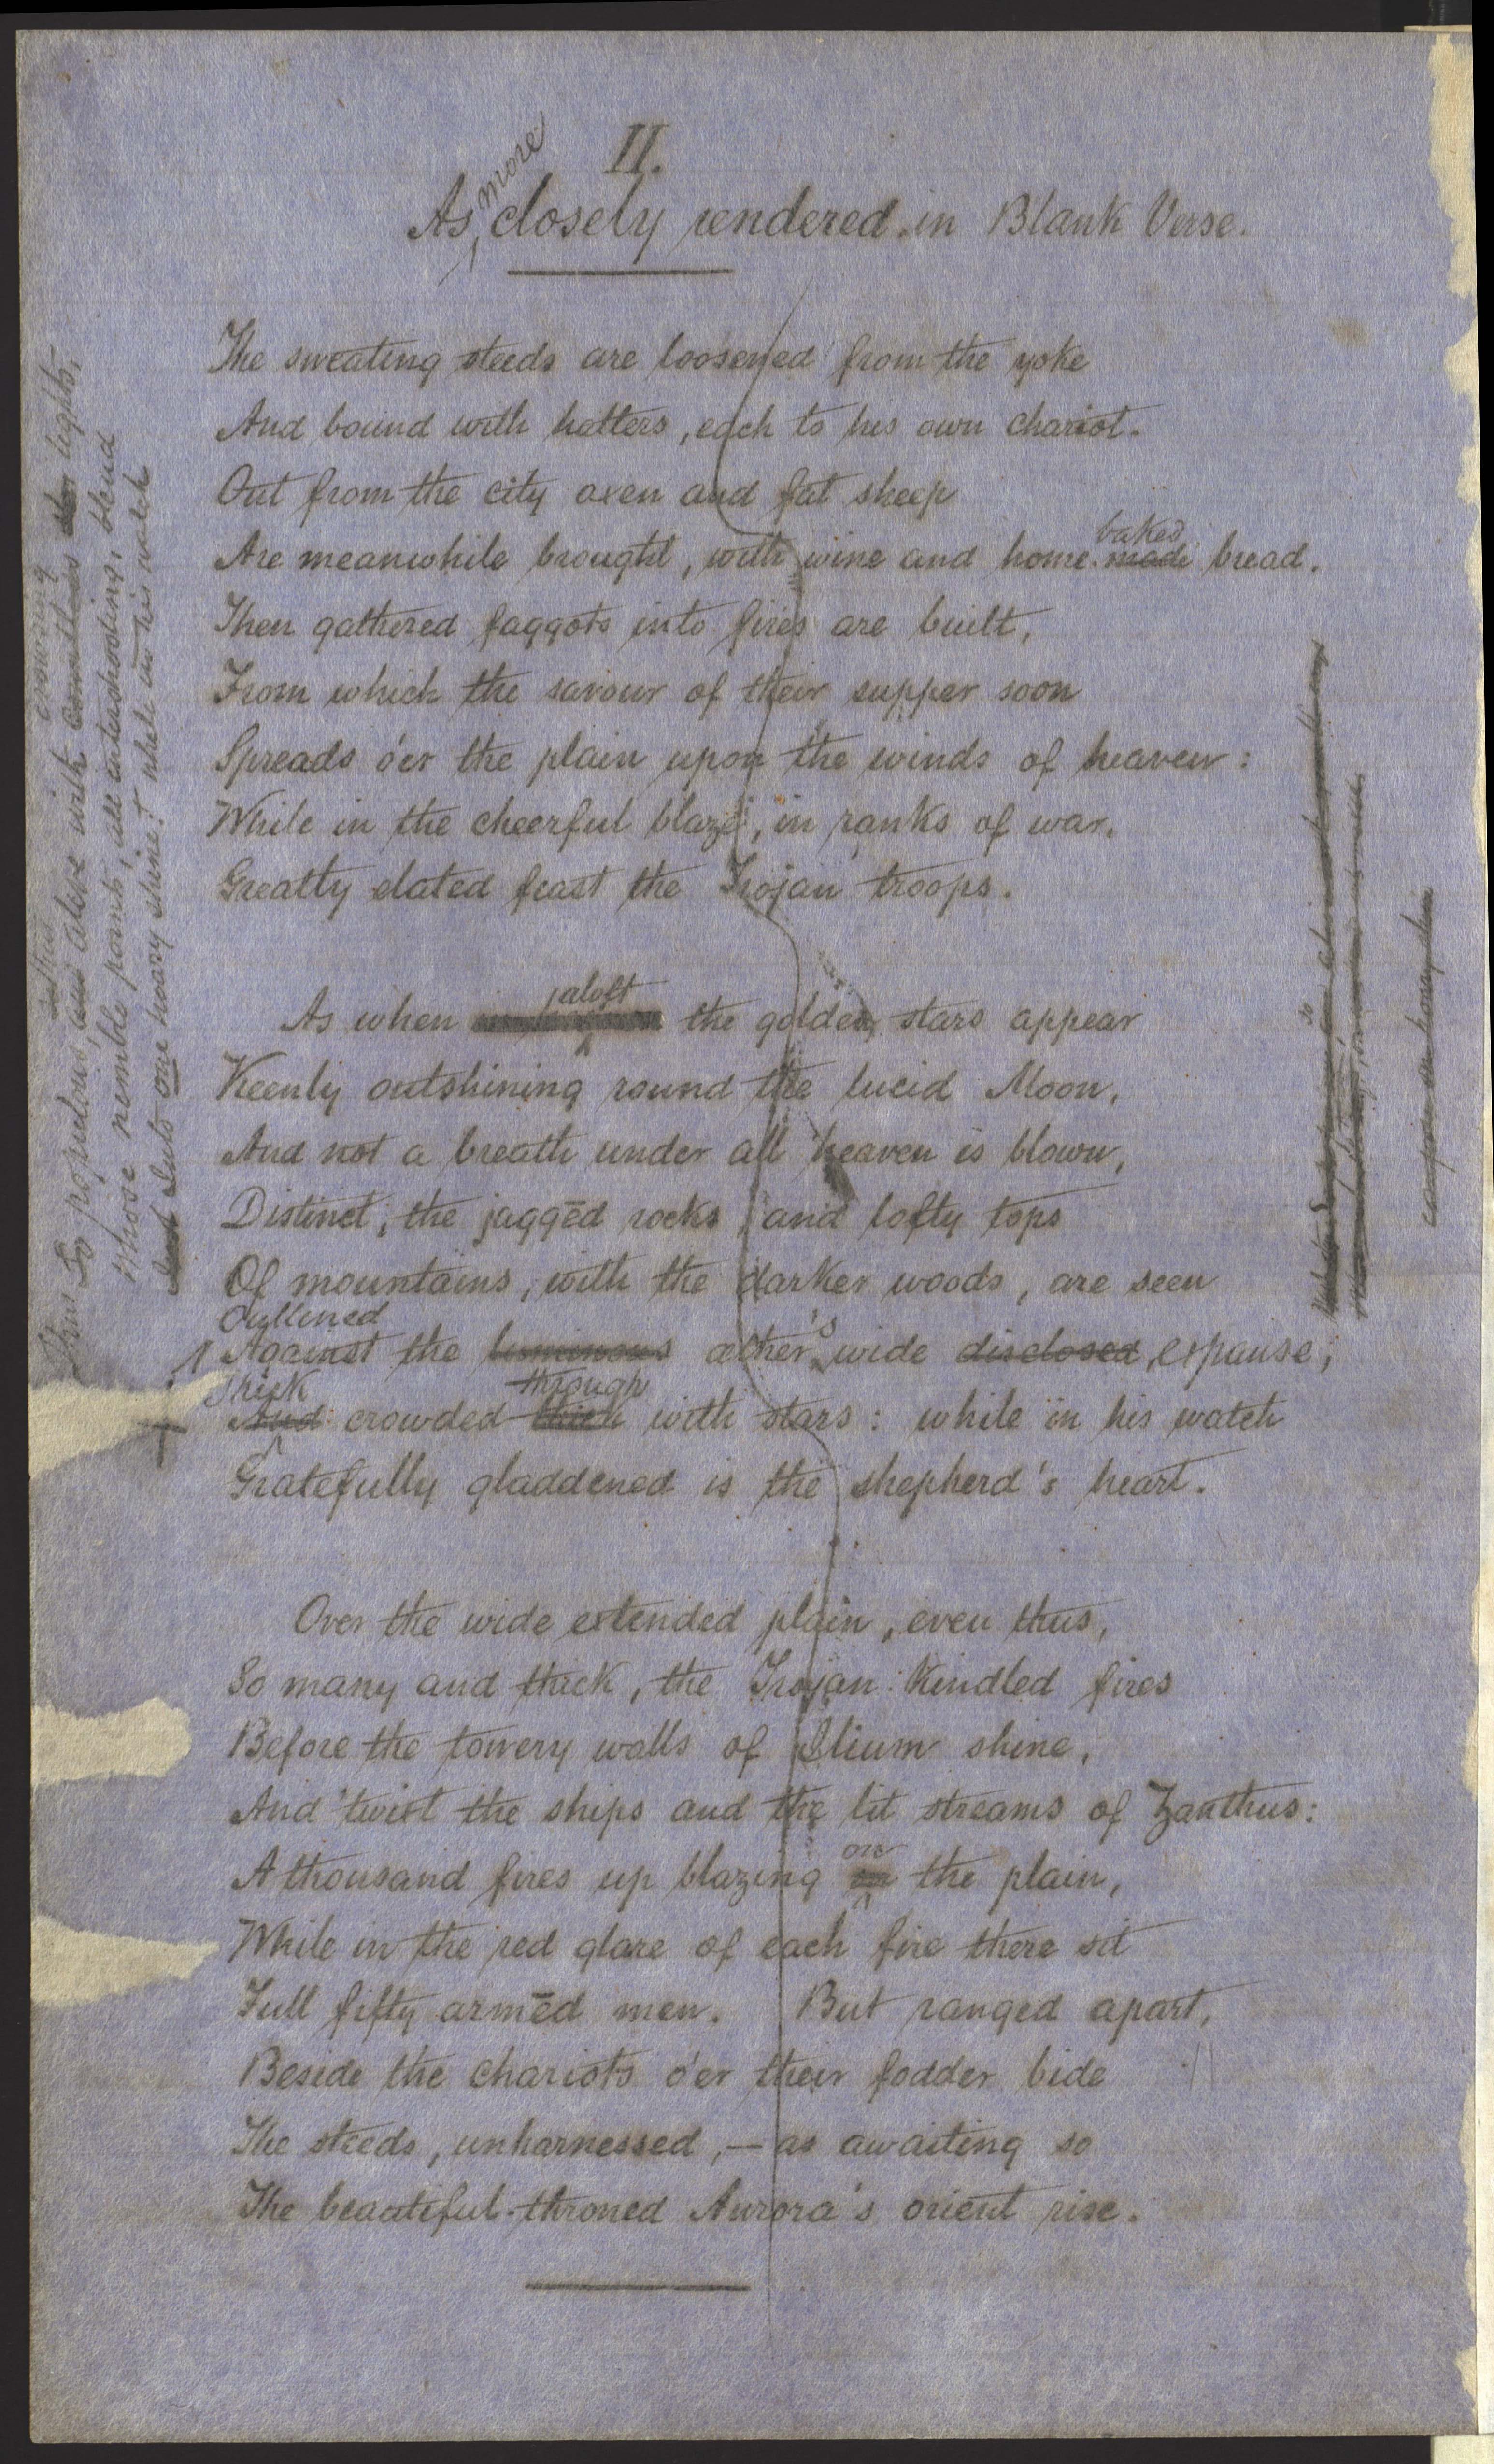 II.
As more closely rendered in Blank Verse.
The sweating steeds are loosened from the yoke
And bound with halters, each to his own chariot.
Out from the city oxen and fat sheep
Are meanwhile brought, with wine and home-made baked bread.
Then gathered faggots into fires are built,
From which the savour of their supper soon
Spreads o'er the plain upon the winds of heaven:
While in the cheerful blaze, in ranks of war,
Greatly elated feast the Trojan troops.
As when aloft the golden stars appear
Keenly outshining round the lucid Moon,
And not a breath under all heaven is blown,
Distinct, the jaggēd rocks, and lofty tops
Of mountains, with the darker woods, are seen
Outlined
Against the luminous æther's wide disclosed expanse;
Thick through
And crowded thick with stars: while in his watch
Gratefully gladdened is the shepherd's heart.
Over the wide extended plain, even thus,
So many and thick, the Trojan-kindled fires
Before the towery walls of Ilium shine,
And 'twixt the ships and the lit streams of Zanthus:
A thousand fires up blazing on the plain,
While in the red glare of each fire there sit
Full fifty armēd men. But ranged apart,
Beside the chariots o'er their fodder bide
The steeds, unharnessed,—as awaiting so
The beautiful-throned Aurora's orient rise.
Thus So populous, and alive with countless crowding lights,
Whose nimble points, all intershooting, blend
Into one hoary shine! while in his watch